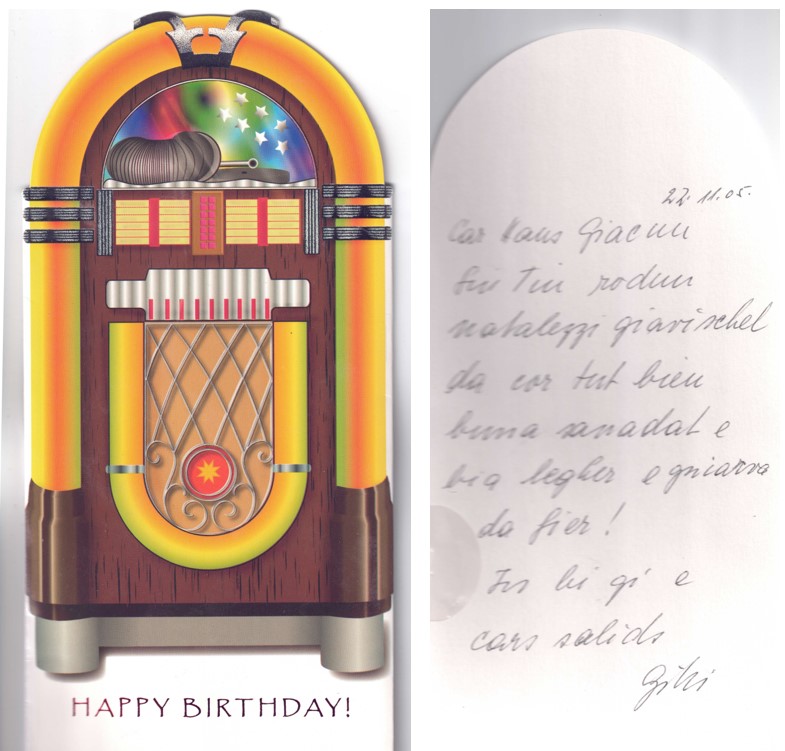 HAPPY BIRTHDAY!
22. 11. 05.
Car Hans Giacun
Sin Tiu rodun
natalezzi giavischel
da cor tut bien
buna sanadat e
bia legher e gniarva
da fier!
In bi gi e
cars salids